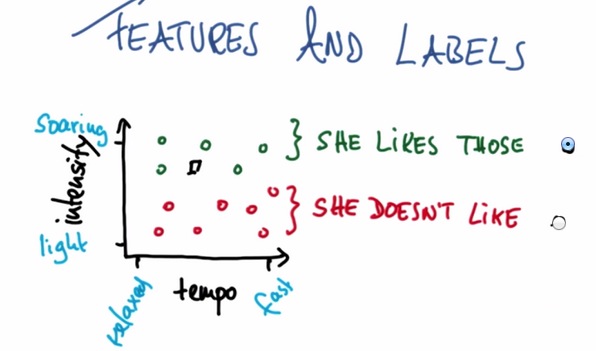 FEATURES AND LABELS
Soaring
intensity
light
relaxed
tempo
fast
SHE LIKES THOSE
SHE DOESN'T LIKE